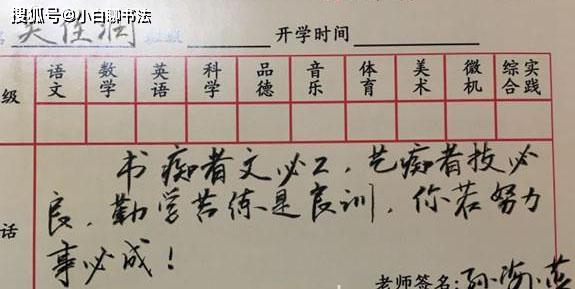 搜狐号@小白聊书法
开学时间
级 语文 数学 英语 科学 品德 音乐 体育 美术 微机 综合实践
书痴者文必工，艺痴者技必
话 良，勤学苦练是良训，你若努力
事必成！
老师签名：孙海燕